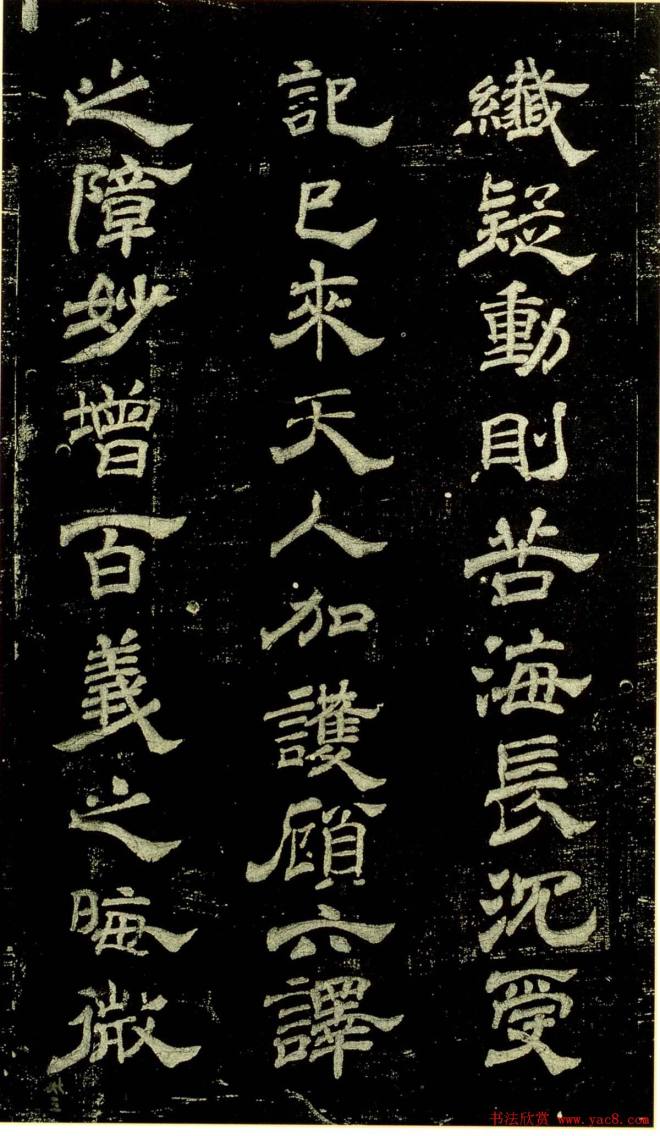 纖疑動則苦海長沉受
記已來天人加護顧六譯
之障妙增百義之晦微
书法欣赏 www.yac8.com